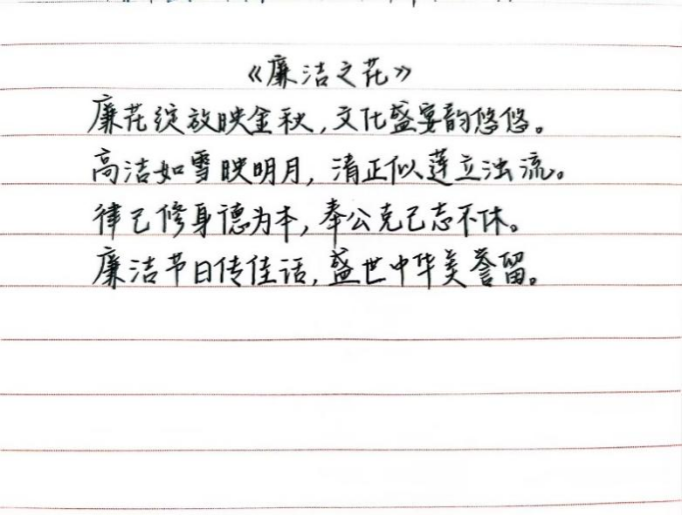 《廉洁之花》
廉花绽放映金秋，文化盛宴韵悠悠。
高洁如雪映明月，清正似莲立浊流。
律己修身德为本，奉公克己志不休。
廉洁节日传佳话，盛世中华美誉留。